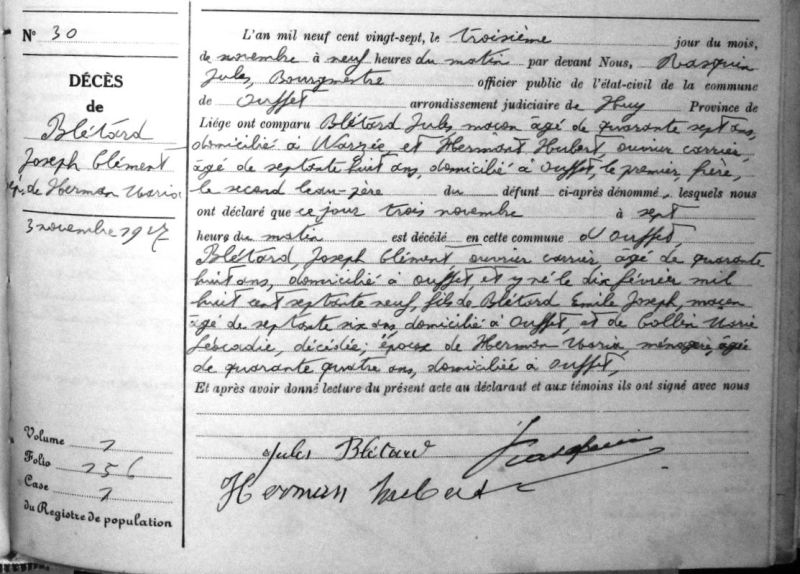 N° 30
DÉCÈS
de
Blétard
Joseph Clément
ép. de Herman Maria
3 novembre 1927
Volume 1
Folio 256
Case 1
du Registre de population
L'an mil neuf cent vingt-sept, le troisième jour du mois,
de novembre à neuf heures du matin par devant Nous, Rasquin
Jules, Bourgmestre officier public de l'état-civil de la commune
de Ouffet arrondissement judiciaire de Huy Province de
Liége ont comparu Blétard Jules, maçon âgé de quarante sept ans,
domicilié à Warzée et Hermant Hubert, ouvrier carrier,
âgé de septante huit ans, domicilié à Ouffet, le premier, frère,
le second beau-père du défunt ci-après dénommé, lesquels nous
ont déclaré que ce jour trois novembre à sept
heure du matin est décédé en cette commune d'Ouffet,
Blétard, Joseph Clément ouvrier carrier, âgé de quarante
huit ans, domicilié à Ouffet, et y né le dix février mil
huit cent septante neuf, fils de Blétard Emile Joseph, maçon
âgé de septante six ans, domicilié à Ouffet, et de Collin Marie
Léocadie, décédée; époux de Herman Maria, ménagère, âgée
de quarante quatre ans, domiciliée à Ouffet,
Et après avoir donné lecture du présent acte au déclarant et aux témoins ils ont signé avec nous
Jules Blétard
Herman hubert